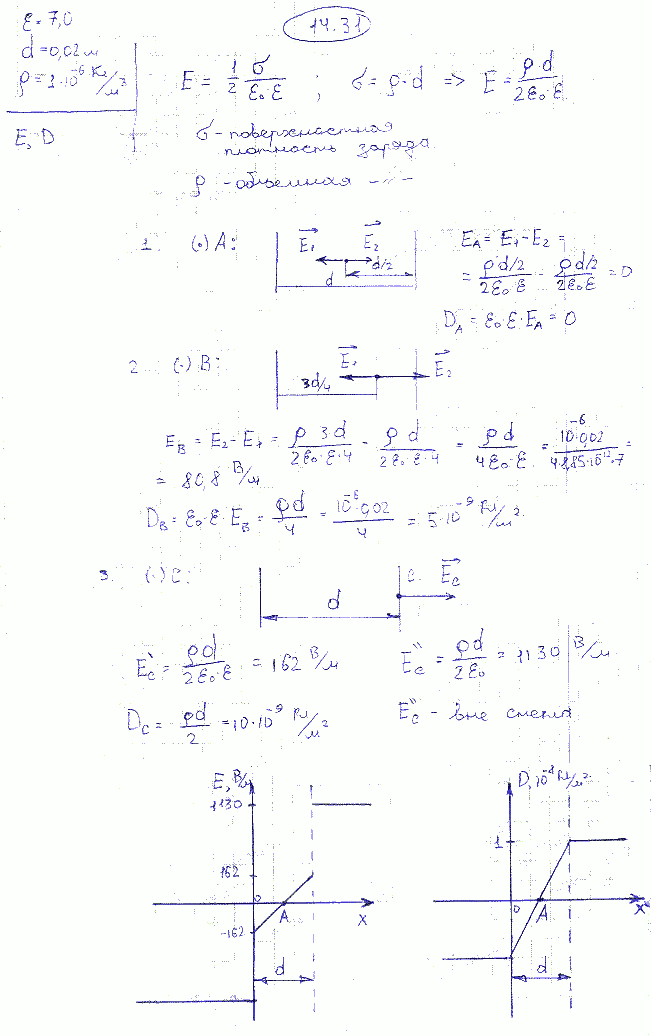 14.31
ε = 7,0
d = 0,02 м
ρ = 1·10⁻⁶ Кл/м³
E, D
E = 1/2 σ/(ε₀·ε) ; σ = ρ·d => E = ρd/(2ε₀·ε)
σ - поверхностная
плотность заряда
ρ - объемная -"-
1. (·) A:
E₁ E₂
d/2
d
E_A = E₁ - E₂ =
= (ρ·d/2)/(2ε₀·ε) - (ρd/2)/(2ε₀·ε) = 0
D_A = ε₀·ε·E_A = 0
2 (·) B:
E₁ E₂
3d/4
E_B = E₂ - E₁ = (ρ·3·d)/(2ε₀·ε·4) - (ρ·d)/(2ε₀·ε·4) = ρd/(4ε₀·ε) = (10⁻⁶·0,02)/(4·8,85·10⁻¹²·7) =
= 80,8 В/м
D_B = ε₀·ε·E_B = ρd/4 = (10⁻⁶·0,02)/4 = 5·10⁻⁹ Кл/м²
3. (·) C:
d
C. E_C
E_C' = ρd/(2ε₀·ε) = 162 В/м E_C'' = ρd/(2ε₀) = 1130 В/м
D_C = ρd/2 = 10·10⁻⁹ Кл/м² E_C'' - вне стекла
E, В/м
1130
162
0
A
X
-162
d
D, 10⁻⁸ Кл/м²
1
0
A
X
d